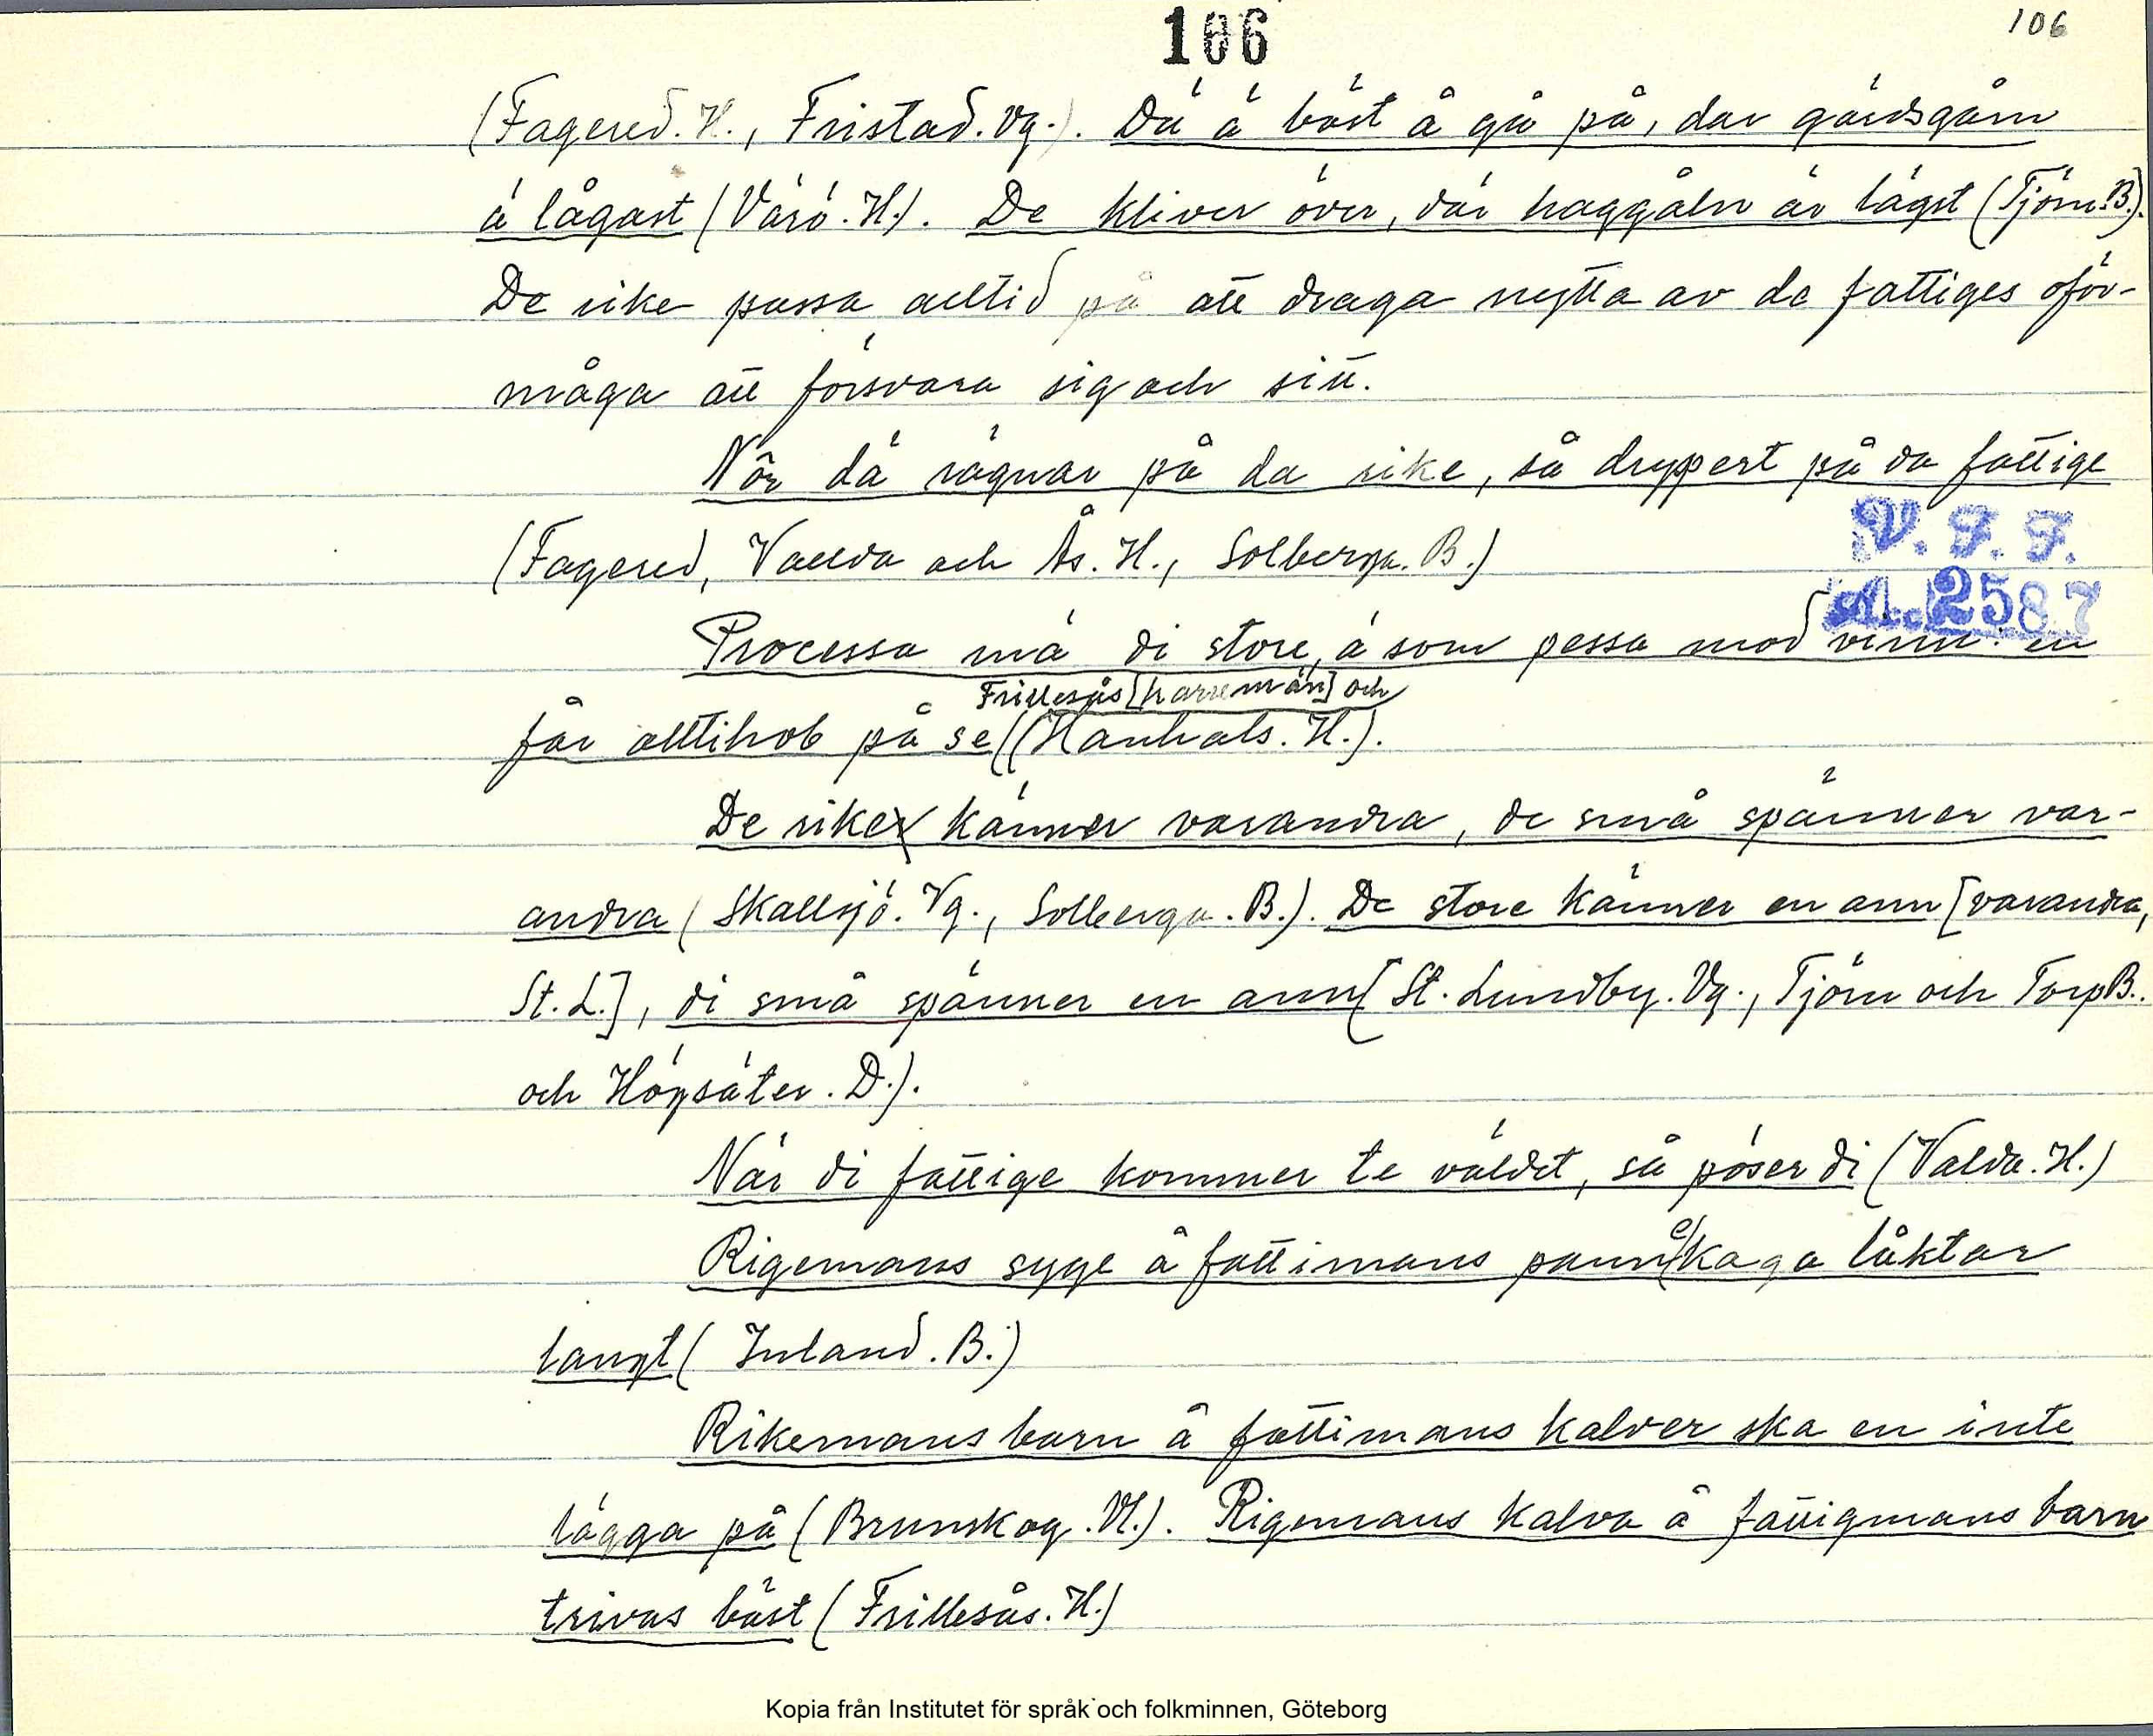 106
106
(Fagered. H., Fristad. Vg.). Dä ä bäst å gå på, dar gärdsgårn
ä lågast (Värö. H.). De kliver över, där haggåln är lägst (Tjörn. B.).
De rike passa alltid på att draga nytta av de fattiges oför-
måga att försvara sig och sitt.
Når dä rägnar på da rike, så dryppert på da fattige
(Fagered, Vallda och Ås. H., Solberga. B.)
V. F. F.
Acc. 2587
Processa mä di store, ä som pessa mod vinn: en
Frillesås [harremän] och
får alltihob på se (Hanhals. H.).
De rike känner varandra, de små spänner var-
andra (Skallsjö. Vg., Solberga. B.). De store känner en ann [varandra,
St. L.], di små spänner en ann (St. Lundby. Vg., Tjörn och Torp B.
och Högsäter. D.).
När di fattige kommer te väldet, så pöser di (Valda. H.)
Rigemans syge å fattimans pannekaga låktar
langt (Inland. B.)
Rikemans barn å fattimans kalver ska en inte
lägga på (Brunskog. Vl.). Rigemans kalva å fattigmans barn
trivas bäst (Frillesås. H.)
Kopia från Institutet för språk och folkminnen, Göteborg